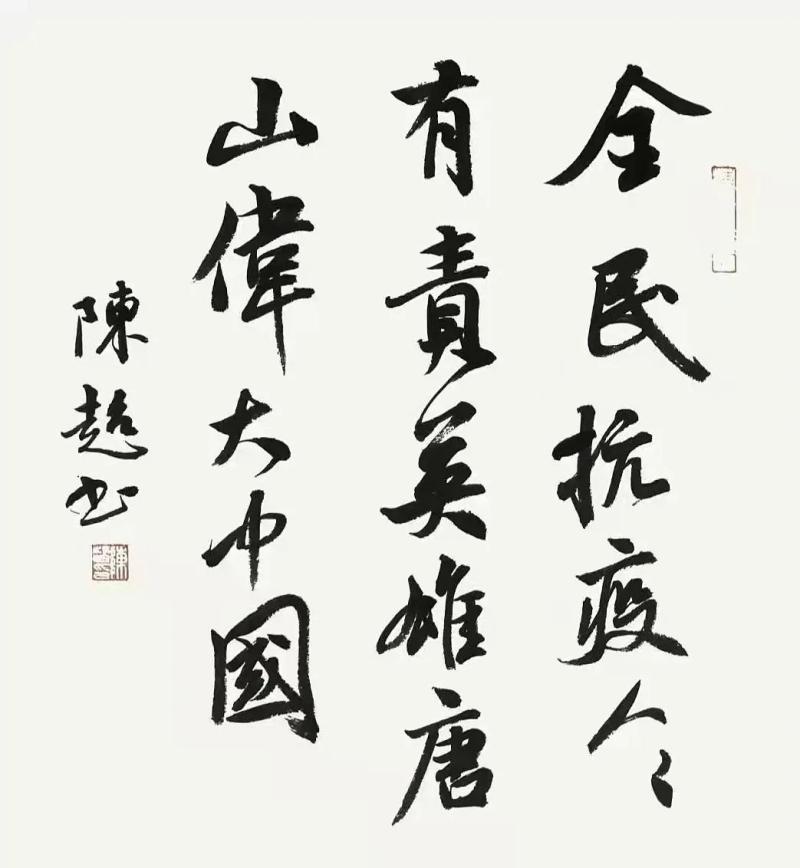 全民抗疫人人
有責英雄唐
山偉大中國
陳超书